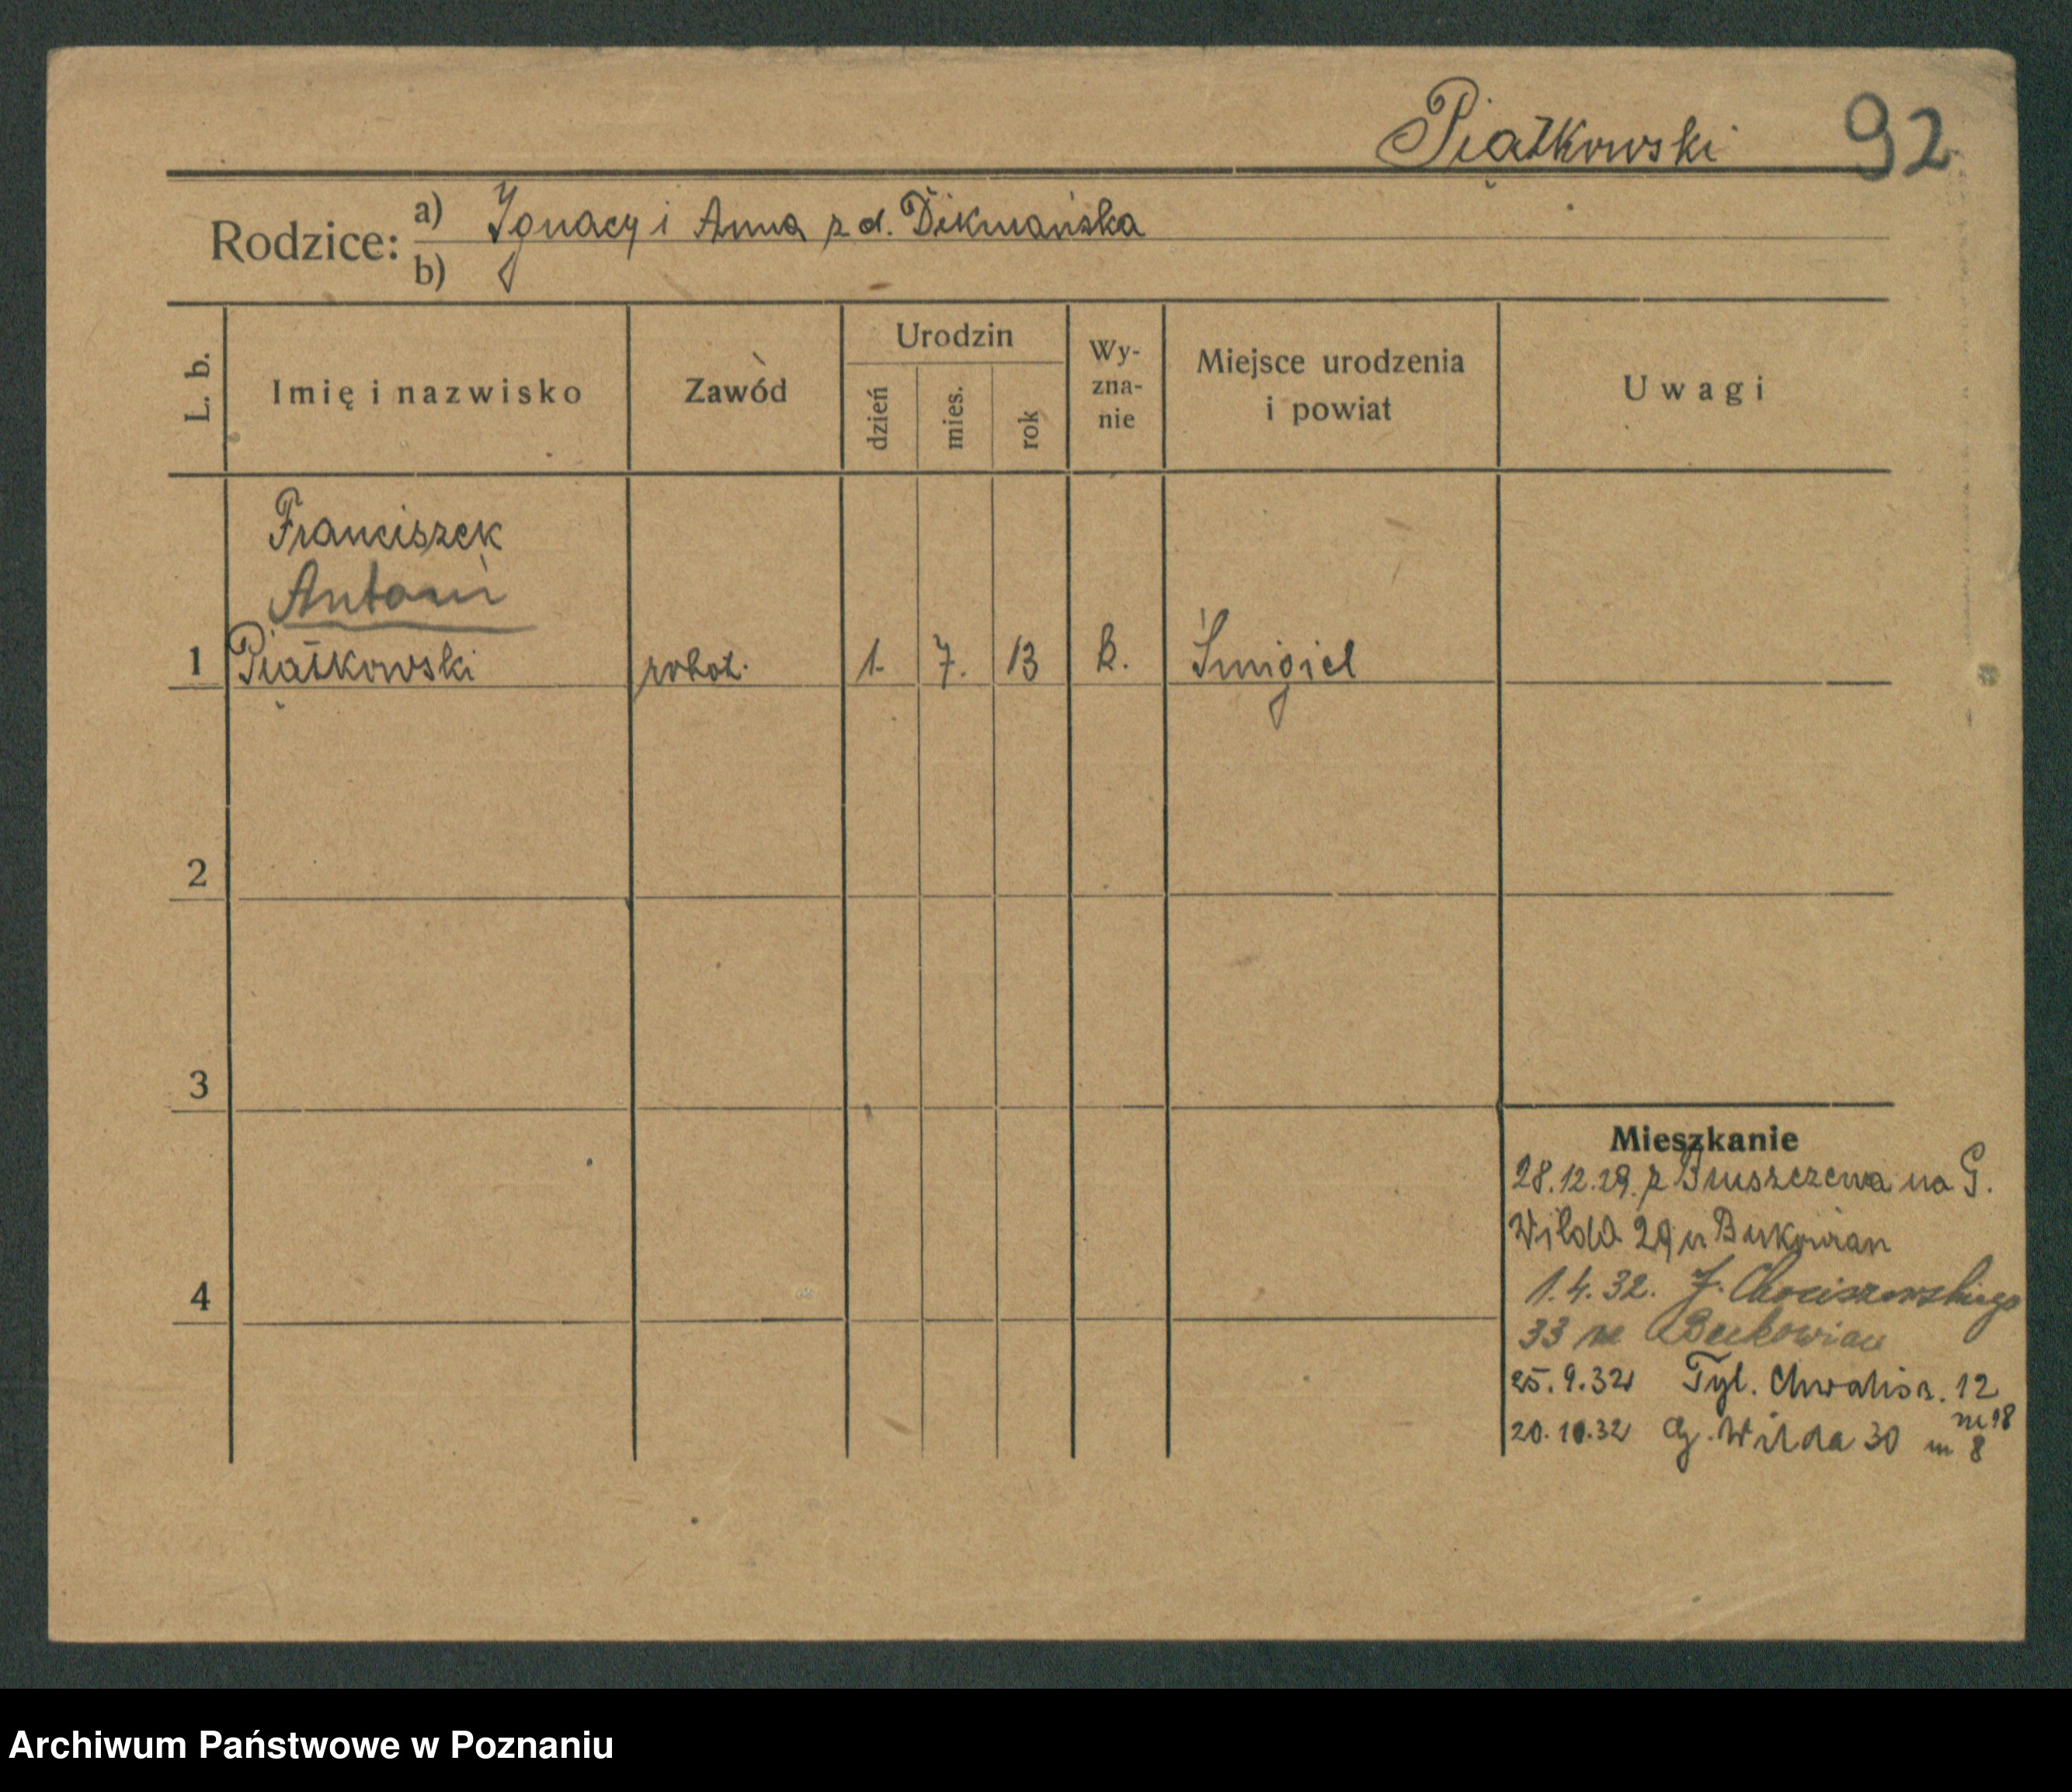 Piątkowski 92
Rodzice: a) Ignacy i Anna z d. Dikmańska
b)
L. b. Imię i nazwisko Zawód Urodzin dzień mies. rok Wy-zna-nie Miejsce urodzenia i powiat Uwagi
Franciszek
Antoni
1 Piątkowski robot. 1. 7. 13 k. Śmigiel
2
3
Mieszkanie
28.12.29. z Bruszczewa na G.
Wilda 29 u Bukowian
4
1.4.32. F. Chociszewskiego
33 u Bukowian
25.9.32 Tyl. Chwalisz. 12
m 18
20.10.32 G. Wilda 30 m 8
Archiwum Państwowe w Poznaniu